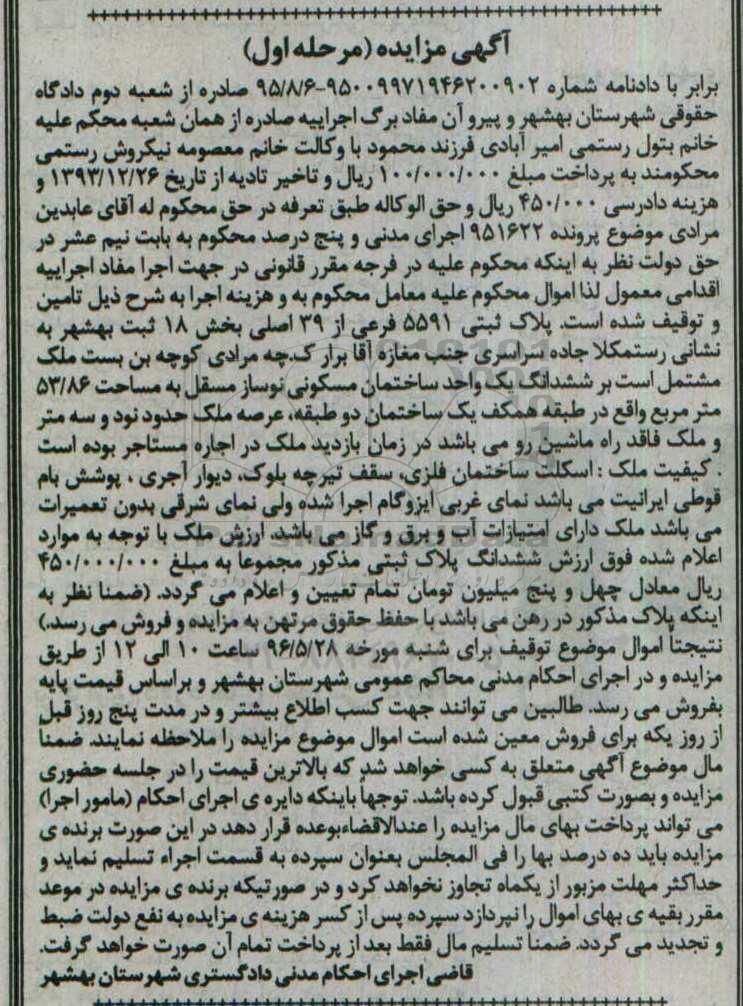 آگهی مزایده (مرحله اول)
برابر با دادنامه شماره ۹۵۰۰۹۹۷۱۹۴۶۲۰۰۹۰۲-۹۵/۸/۶ صادره از شعبه دوم دادگاه
حقوقی شهرستان بهشهر و پیرو آن مفاد برگ اجراییه صادره از همان شعبه محکم علیه
خانم بتول رستمی امیر آبادی فرزند محمود با وکالت خانم معصومه نیکروش رستمی
محکومند به پرداخت مبلغ ۱۰۰/۰۰۰/۰۰۰ ریال و تاخیر تادیه از تاریخ ۱۳۹۳/۱۲/۲۶ و
هزینه دادرسی ۴۵۰/۰۰۰ ریال و حق الوکاله طبق تعرفه در حق محکوم له آقای عابدین
مرادی موضوع پرونده ۹۵۱۶۲۲ اجرای مدنی و پنج درصد محکوم به بابت نیم عشر در
حق دولت نظر به اینکه محکوم علیه در فرجه مقرر قانونی در جهت اجرا مفاد اجراییه
اقدامی معمول لذا اموال محکوم علیه معامل محکوم به و هزینه اجرا به شرح ذیل تامین
و توقیف شده است. پلاک ثبتی ۵۵۹۱ فرعی از ۳۹ اصلی بخش ۱۸ ثبت بهشهر به
نشانی رستمکلا جاده سراسری جنب مغازه آقا برار ک.چه مرادی کوچه بن بست ملک
مشتمل است بر ششدانگ یک واحد ساختمان مسکونی نوساز مسقل به مساحت ۵۳/۸۶
متر مربع واقع در طبقه همکف یک ساختمان دو طبقه، عرصه ملک حدود نود و سه متر
و ملک فاقد راه ماشین رو می باشد در زمان بازدید ملک در اجاره مستاجر بوده است
. کیفیت ملک : اسکلت ساختمان فلزی، سقف تیرچه بلوک، دیوار آجری ، پوشش بام
قوطی ایرانیت می باشد نمای غربی ایزوگام اجرا شده ولی نمای شرقی بدون تعمیرات
می باشد ملک دارای امتیازات آب و برق و گاز می باشد. ارزش ملک با توجه به موارد
اعلام شده فوق ارزش ششدانگ پلاک ثبتی مذکور مجموعا به مبلغ ۴۵۰/۰۰۰/۰۰۰
ریال معادل چهل و پنج میلیون تومان تمام تعیین و اعلام می گردد. (ضمنا نظر به
اینکه پلاک مذکور در رهن می باشد با حفظ حقوق مرتهن به مزایده و فروش می رسد.)
نتیجتا اموال موضوع توقیف برای شنبه مورخه ۹۶/۵/۲۸ ساعت ۱۰ الی ۱۲ از طریق
مزایده و در اجرای احکام مدنی محاکم عمومی شهرستان بهشهر و براساس قیمت پایه
بفروش می رسد. طالبین می توانند جهت کسب اطلاع بیشتر و در مدت پنج روز قبل
از روز یکه برای فروش معین شده است اموال موضوع مزایده را ملاحظه نمایند. ضمنا
مال موضوع آگهی متعلق به کسی خواهد شد که بالاترین قیمت را در جلسه حضوری
مزایده و بصورت کتبی قبول کرده باشد. توجها باینکه دایره ی اجرای احکام (مامور اجرا)
می تواند پرداخت بهای مال مزایده را عندالاقضاءبوعده قرار دهد در این صورت برنده ی
مزایده باید ده درصد بها را فی المجلس بعنوان سپرده به قسمت اجراء تسلیم نماید و
حداکثر مهلت مزبور از یکماه تجاوز نخواهد کرد و در صورتیکه برنده ی مزایده در موعد
مقرر بقیه ی بهای اموال را نپردازد سپرده پس از کسر هزینه ی مزایده به نفع دولت ضبط
و تجدید می گردد. ضمناً تسلیم مال فقط بعد از پرداخت تمام آن صورت خواهد گرفت.
قاضی اجرای احکام مدنی دادگستری شهرستان بهشهر